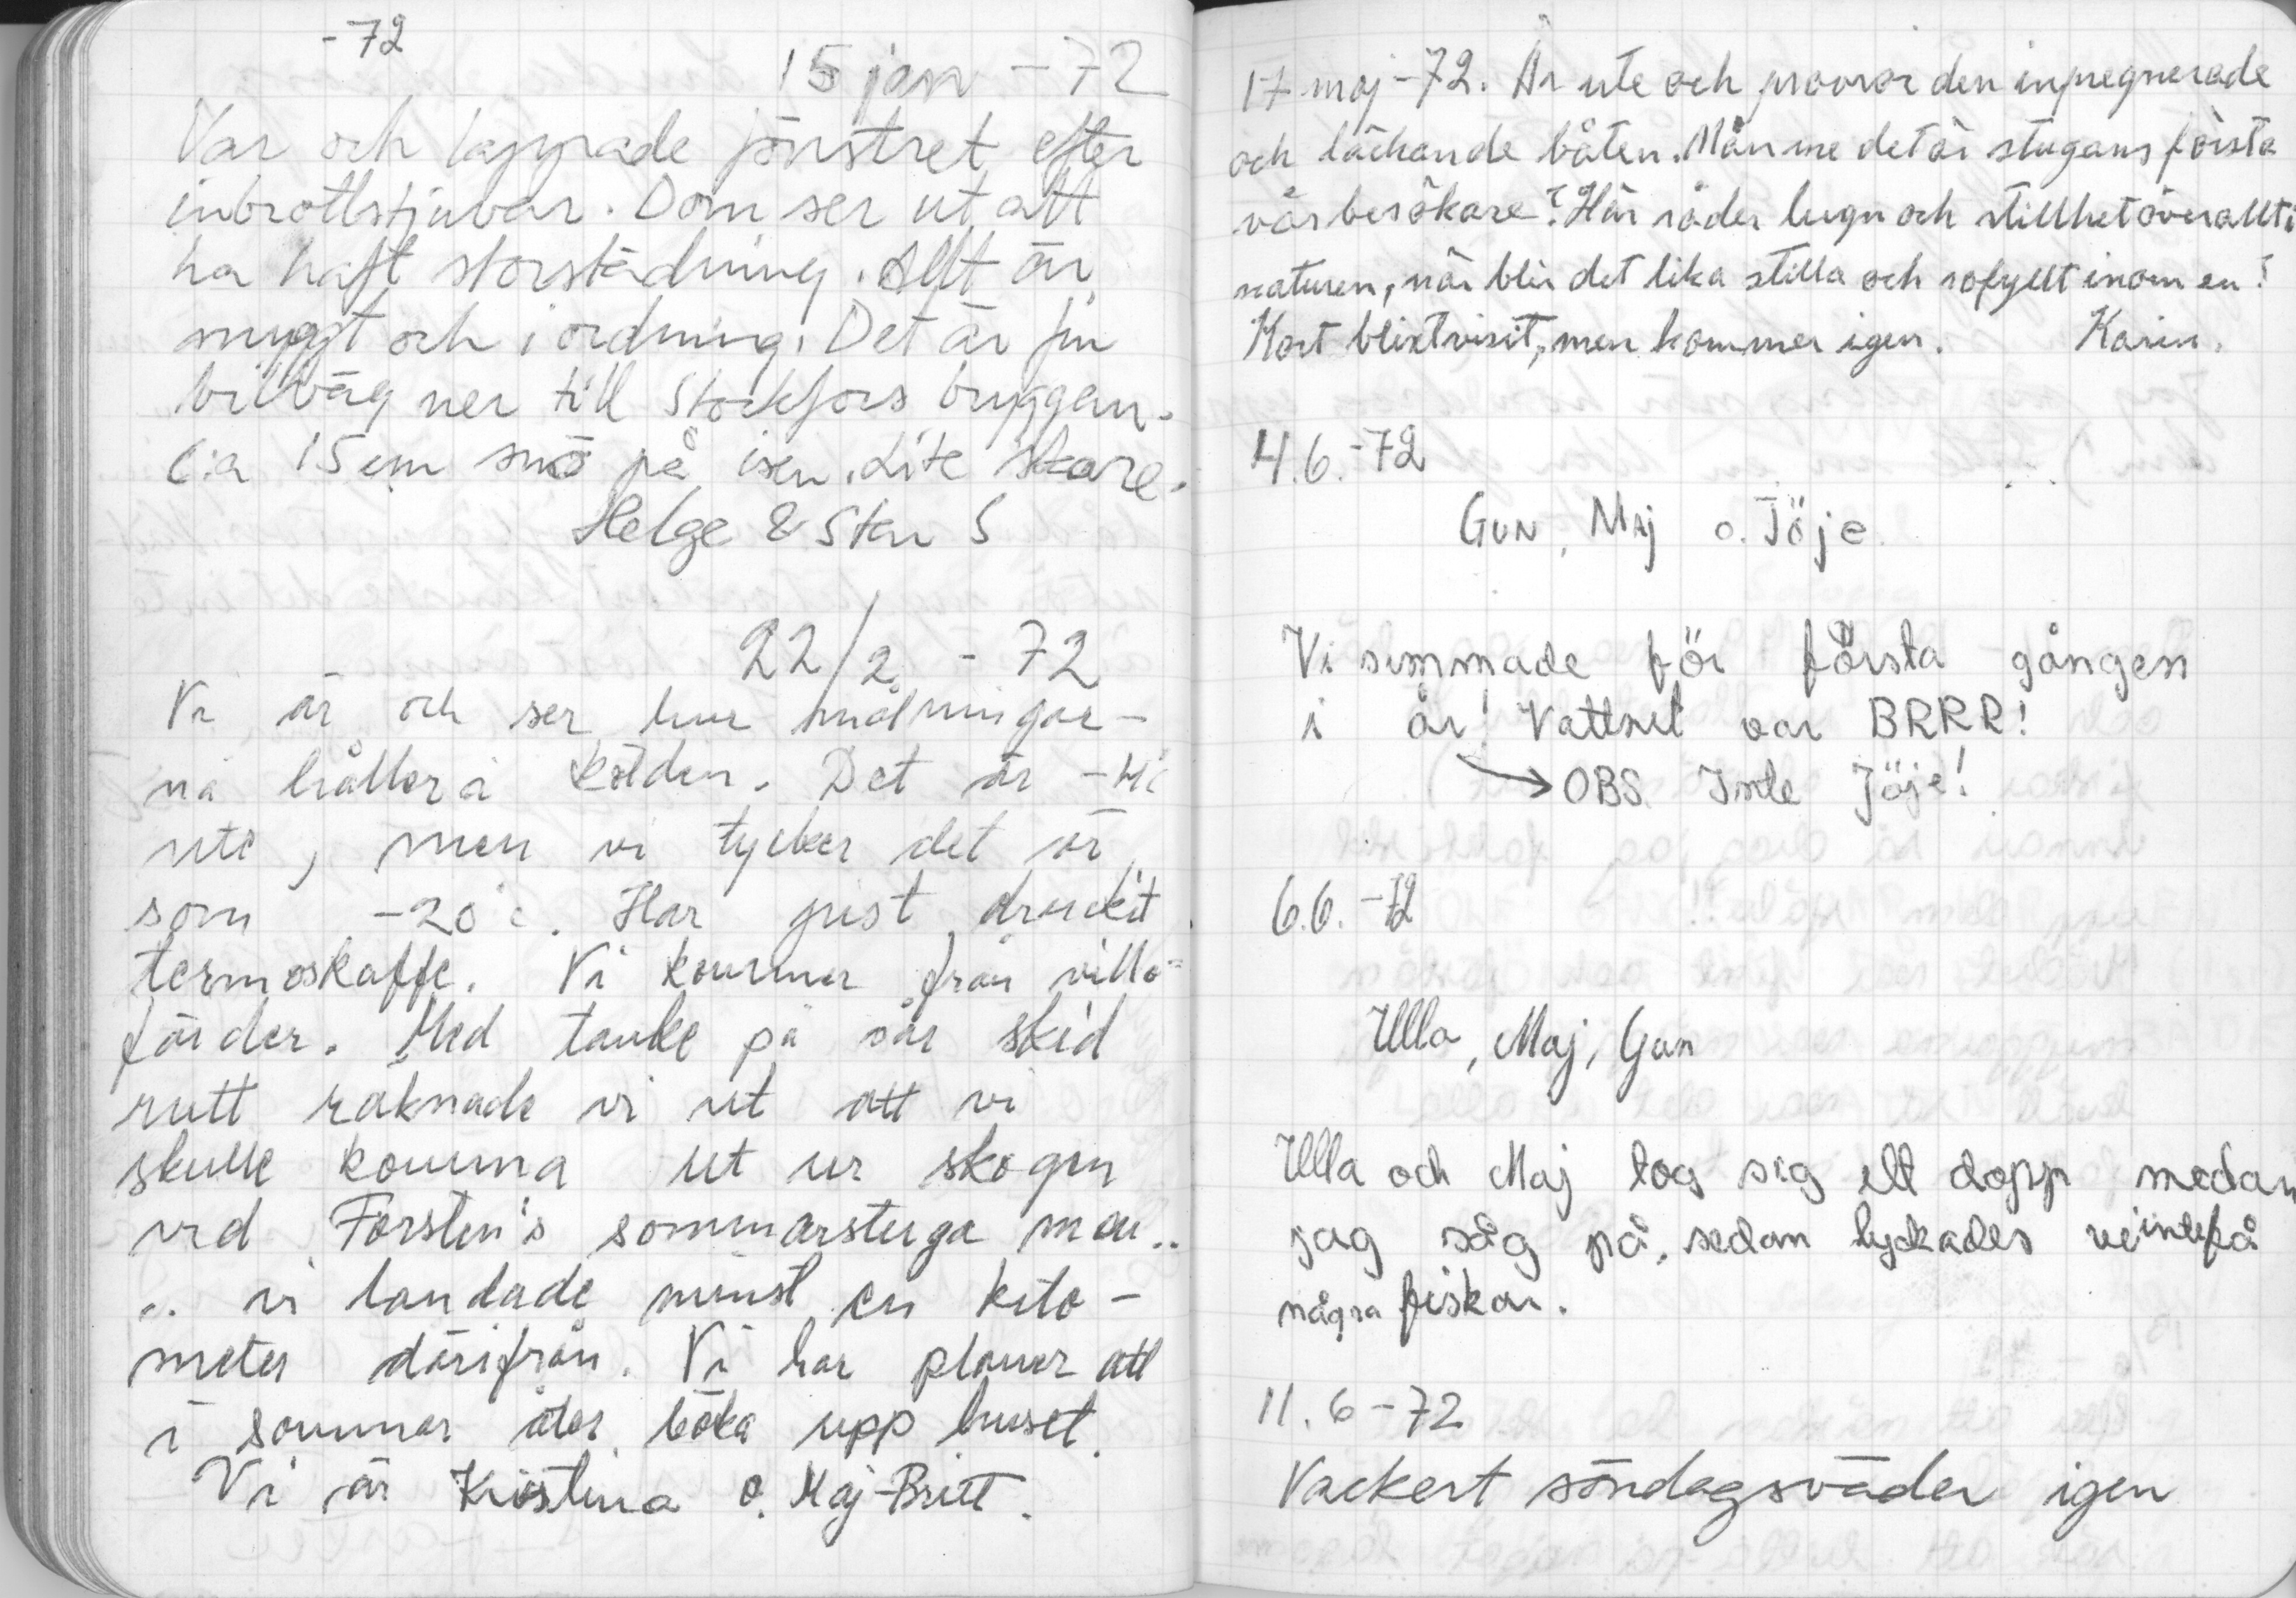 -72
15 jan -72
Var och lappade fönstret efter
inbrottstjuvar. Dom ser ut att
ha haft storstädning. Allt är
snyggt och i ordning. Det är fin
bilväg ner till Stockfors bryggan.
C:a 15 cm snö på isen. Lite skare.
Helge & Sten S
22/2 - 72
Vi är och ser hur målningar-
na håller i kölden. Det är -4°C
ute, men vi tycker det är
som -20°C. Har just druckit
termoskaffe. Vi kommer från villo-
färder. Med tanke på vår skid
rutt räknade vi ut att vi
skulle komma ut ur skogen
vid Forsten's sommarstuga men..
.. vi landade minst en kilo-
meter därifrån. Vi har planer att
i sommar åter böka upp huset.
Vi är Kristina o. Maj-Britt.
17 maj -72. Är ute och provror den inpregnerade
och läckande båten. Månne det är stugans första
vårbesökare? Här råder lugn och stillhet överallt i
naturen, när blir det lika stilla och rofyllt inom en?
Kort blixtvisit, men kommer igen. Karin.
4.6.-72
GUN, MAj o. Jöje.
Vi simmade för första gången
i år! Vattnet var BRRR!
→ OBS Inte Jöje!
6.6.-72
Ulla, Maj, Gun
Ulla och Maj tog sig ett dopp medan
jag såg på, sedan lyckades vi inte få
några fiskar.
11.6-72
Vackert söndagsväder igen